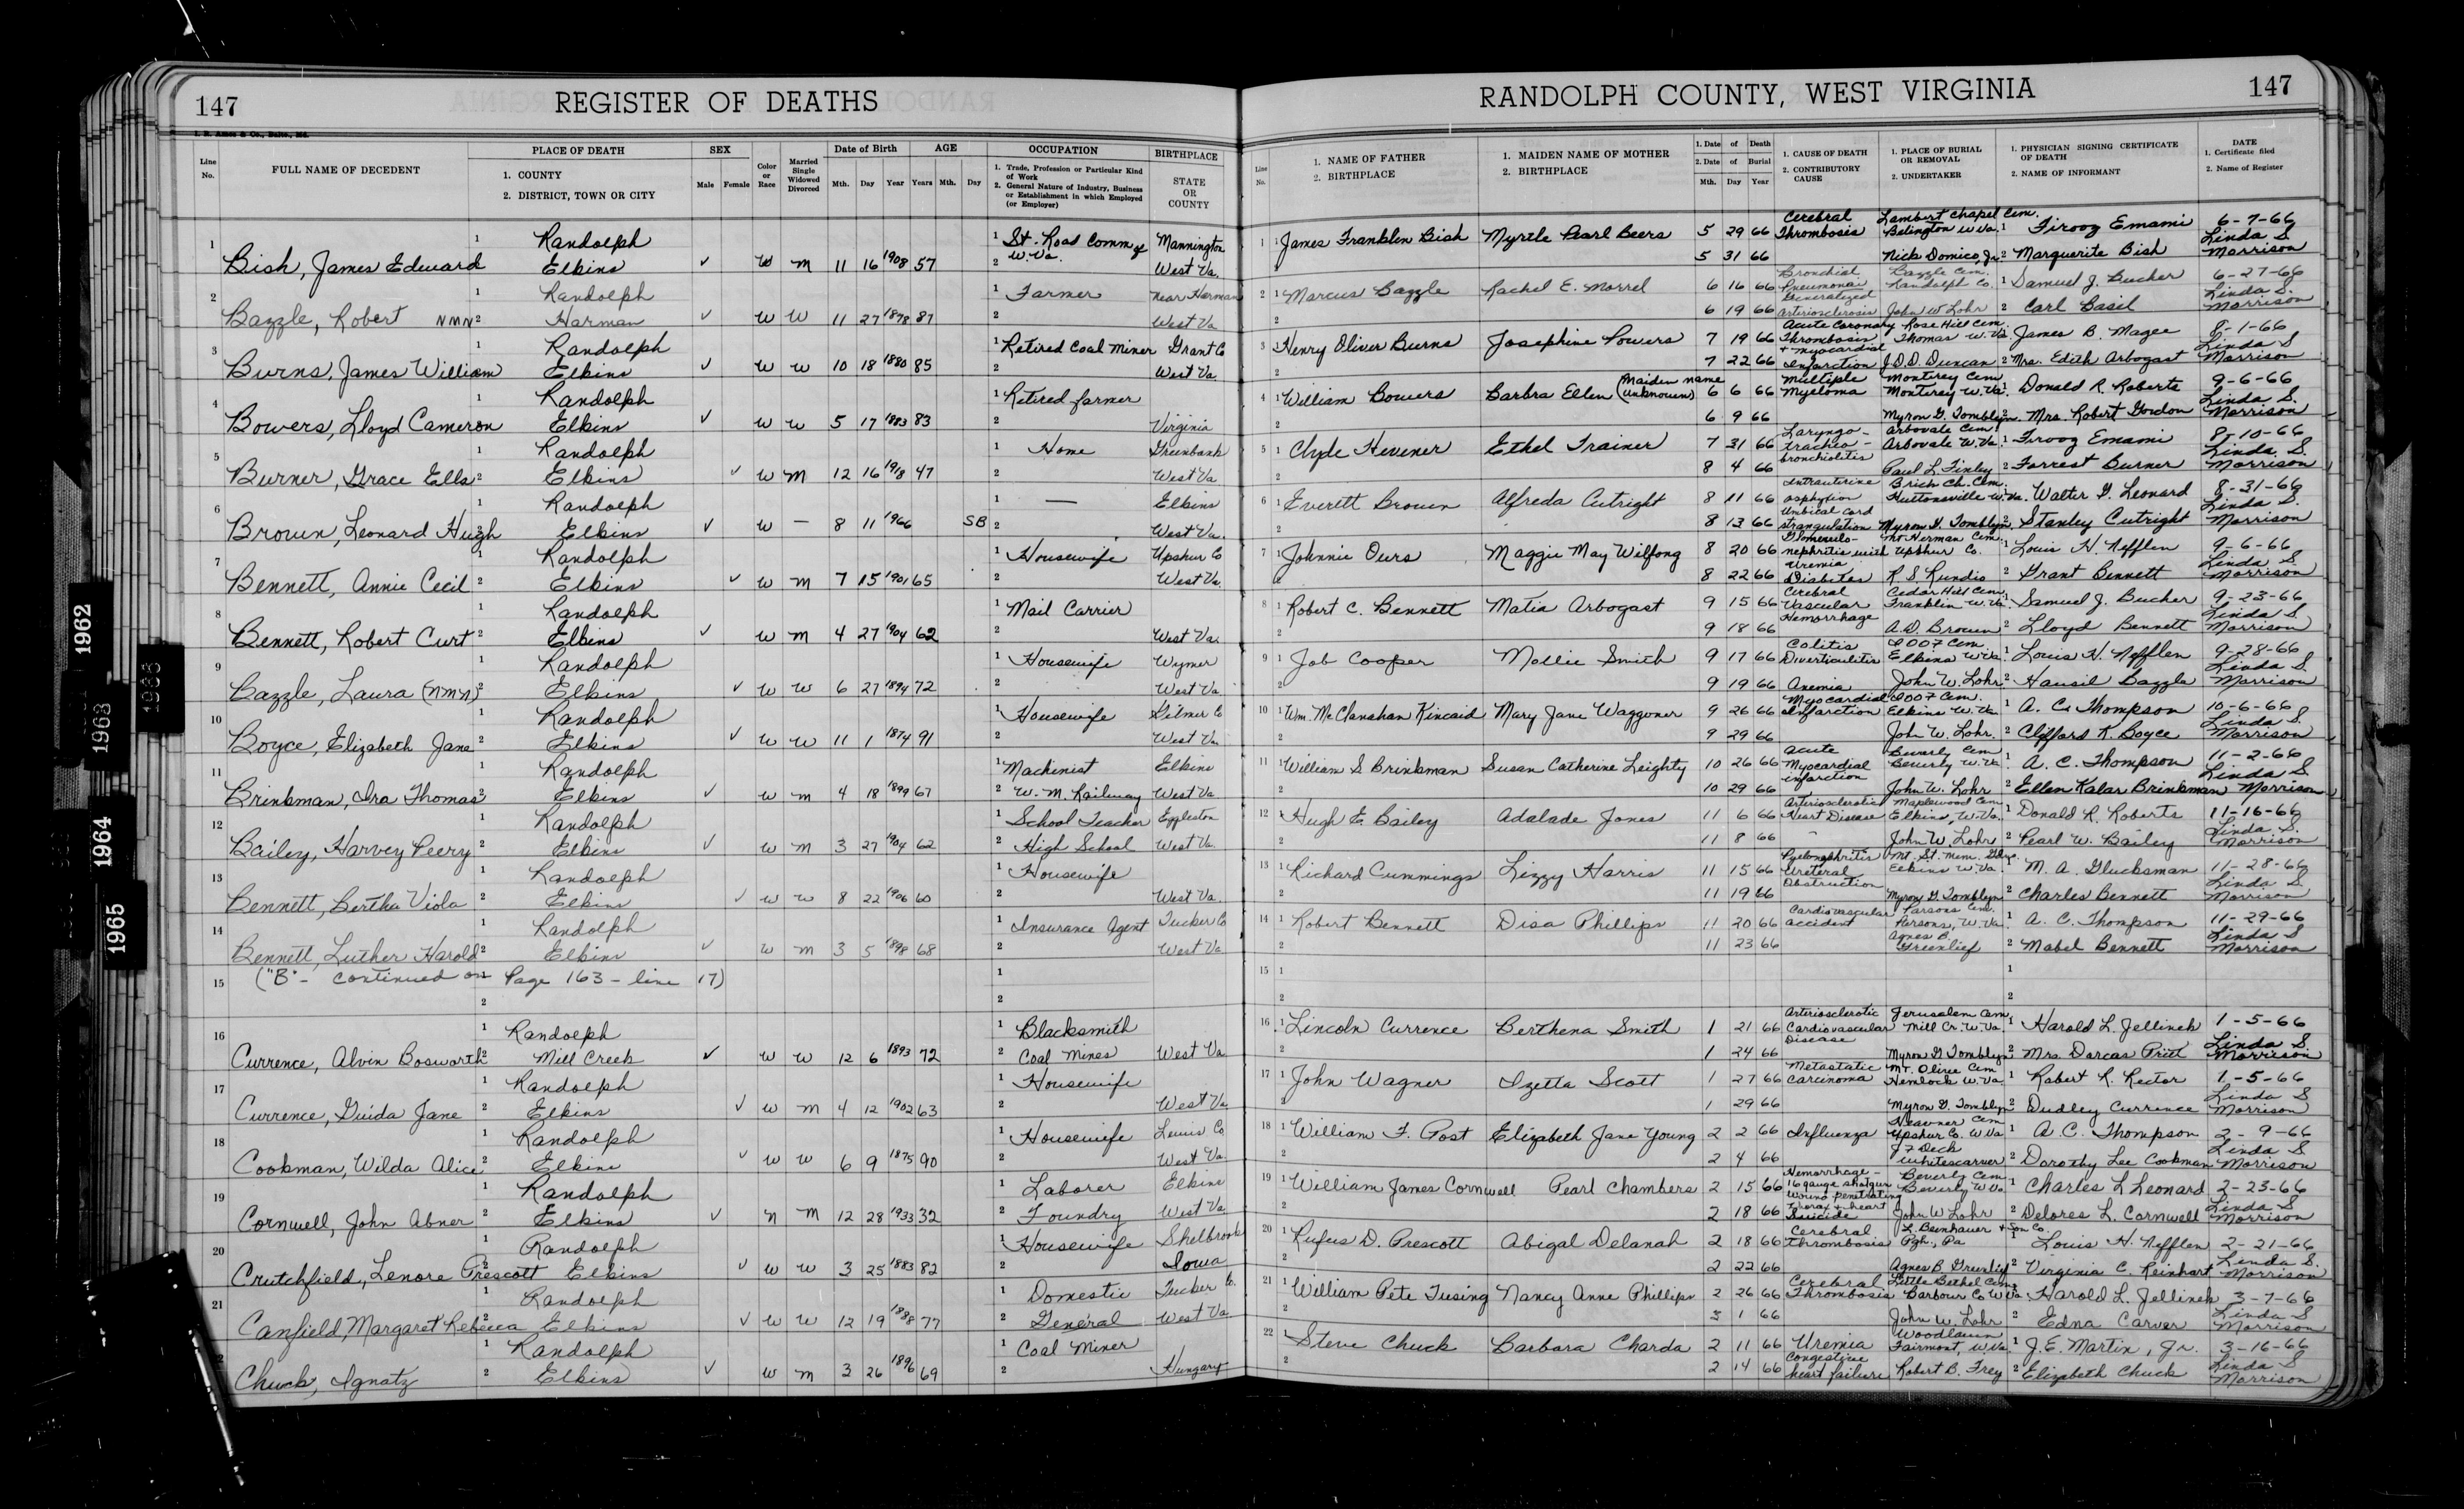 147 REGISTER OF DEATHS
RANDOLPH COUNTY, WEST VIRGINIA 147
Line No. FULL NAME OF DECEDENT PLACE OF DEATH 1. COUNTY 2. DISTRICT, TOWN OR CITY SEX Male Female Color or Race Married Single Widowed Divorced Date of Birth Mth. Day Year AGE Years Mth. Day OCCUPATION 1. Trade, Profession or Particular Kind of Work 2. General Nature of Industry, Business or Establishment in which Employed (or Employer) BIRTHPLACE STATE OR COUNTY
Line No. 1. NAME OF FATHER 2. BIRTHPLACE 1. MAIDEN NAME OF MOTHER 2. BIRTHPLACE 1. Date of Death 2. Date of Burial Mth. Day Year 1. CAUSE OF DEATH 2. CONTRIBUTORY CAUSE 1. PLACE OF BURIAL OR REMOVAL 2. UNDERTAKER 1. PHYSICIAN SIGNING CERTIFICATE OF DEATH 2. NAME OF INFORMANT DATE 1. Certificate filed 2. Name of Register
1 Bish, James Edward 1 Randolph 2 Elkins ✓ W M 11 16 1908 57 1 St. Road Comm of W. Va. 2 Mannington West Va.
1 James Franklin Bish Myrtle Pearl Beers 5 29 66 Cerebral Thrombosis Lambert Chapel Cem. Belington W. Va. 1 Firooz Emami 6-7-66
5 31 66 Nick Domico, Jr. 2 Marguerite Bish Linda S. Morrison
2 Bazzle, Robert NMN 1 Randolph 2 Harman ✓ W W 11 27 1878 87 1 Farmer 2 near Harman West Va
2 Marcus Bazzle Rachel E. Morrel 6 16 66 Bronchial Pneumonia Bazzle Cem. Randolph Co. 1 Samuel J. Bucher 6-27-66
6 19 66 Generalized Arteriosclerosis John W Lohr 2 Carl Basil Linda S. Morrison
3 Burns, James William 1 Randolph 2 Elkins ✓ W W 10 18 1880 85 1 Retired Coal Miner 2 Grant Co West Va
3 Henry Oliver Burns Josephine Powers 7 19 66 Acute Coronary Thrombosis + myocardial Infarction Rose Hill Cem. Thomas W. Va 1 James B. Magee 8-1-66
7 22 66 J.D.D. Duncan 2 Mrs. Edith Arbogast Linda S Morrison
4 Bowers, Lloyd Cameron 1 Randolph 2 Elkins ✓ W W 5 17 1883 83 1 Retired farmer 2 Virginia
4 William Bowers Barbra Ellen (Maiden name Unknown) 6 6 66 Multiple Myeloma Monterey Cem. Monterey W. Va. 1 Donald R. Roberts 9-6-66
6 9 66 Myron G. Tomblyn 2 Mrs. Robert Gordon Linda S. Morrison
5 Burner, Grace Ella 1 Randolph 2 Elkins ✓ W M 12 16 1918 47 1 Home 2 Greenbank West Va
5 Clyde Hevener Ethel Trainer 7 31 66 Laryngo-trachea-bronchiolitis Arbovale Cem. Arbovale W. Va. 1 Firooz Emami 8-10-66
8 4 66 Paul L. Finley 2 Forrest Burner Linda S. Morrison
6 Brown, Leonard Hugh 1 Randolph 2 Elkins ✓ W — 8 11 1966 SB 1 — 2 Elkins West Va.
6 Everett Brown Alfreda Cutright 8 11 66 Intrauterine asphyxion Brick Ch. Cem. Huttonsville W. Va. 1 Walter G. Leonard 8-31-66
8 13 66 Umbical cord strangulation Myron G. Tomblyn 2 Stanley Cutright Linda S. Morrison
7 Bennett, Annie Cecil 1 Randolph 2 Elkins ✓ W M 7 15 1901 65 1 Housewife 2 Upshur Co West Va.
7 Johnnie Ours Maggie May Wilfong 8 20 66 Glomerulo-nephritis with Uremia Mt Herman Cem. Upshur Co. 1 Louis H. Nefflen 9-6-66
8 22 66 Diabites R. S. Rundio 2 Grant Bennett Linda S. Morrison
8 Bennett, Robert Curt 1 Randolph 2 Elkins ✓ W M 4 27 1904 62 1 Mail Carrier 2 West Va.
8 Robert C. Bennett Matia Arbogast 9 15 66 Cerebral Vascular Hemorrhage Cedar Hill Cem. Franklin W. Va. 1 Samuel J. Bucher 9-23-66
9 18 66 A.D. Brown 2 Lloyd Bennett Linda S Morrison
9 Bazzle, Laura (NMN) 1 Randolph 2 Elkins ✓ W W 6 27 1894 72 1 Housewife 2 Wymer West Va
9 Job Cooper Mollie Smith 9 17 66 Colitis Diverticulitis IOOF Cem. Elkins W. Va. 1 Louis H. Nefflen 9-28-66
9 19 66 Anemia John W. Lohr 2 Hansil Bazzle Linda S. Morrison
10 Boyce, Elizabeth Jane 1 Randolph 2 Elkins ✓ W W 11 1 1874 91 1 Housewife 2 Gilmer Co West Va
10 Wm. McClanahan Kincaid Mary Jane Waggoner 9 26 66 Myocardial Infarction IOOF Cem. Elkins W. Va. 1 A. C. Thompson 10-6-66
9 29 66 John W. Lohr 2 Clifford K. Boyce Linda S. Morrison
11 Brinkman, Ira Thomas 1 Randolph 2 Elkins ✓ W M 4 18 1899 67 1 Machinist 2 W. M. Railway Elkins West Va
11 William S Brinkman Susan Catherine Leighty 10 26 66 Acute Myocardial infarction Beverly Cem Beverly W. Va 1 A. C. Thompson 11-2-66
10 29 66 John W. Lohr 2 Ellen Kalar Brinkman Linda S. Morrison
12 Bailey, Harvey Peery 1 Randolph 2 Elkins ✓ W M 3 27 1904 62 1 School Teacher 2 High School Eggleston West Va.
12 Hugh E. Bailey Adalade Jones 11 6 66 Arteriosclerotic Heart Disease Maplewood Cem. Elkins, W. Va. 1 Donald R. Roberts 11-16-66
11 8 66 John W. Lohr 2 Pearl W. Bailey Linda S. Morrison
13 Bennett, Bertha Viola 1 Randolph 2 Elkins ✓ W W 8 22 1906 60 1 Housewife 2 West Va.
13 Richard Cummings Lizzy Harris 11 15 66 Pyelonephritis Ureteral Obstruction Mt. St. Mem. Gdns. Elkins W. Va. 1 M. A. Glucksman 11-28-66
11 19 66 Myron G. Tomblyn 2 Charles Bennett Linda S. Morrison
14 Bennett, Luther Harold 1 Randolph 2 Elkins ✓ W M 3 5 1898 68 1 Insurance Agent 2 Tucker Co West Va
14 Robert Bennett Disa Phillips 11 20 66 Cardiovascular accident Parsons Cem. Parsons, W. Va. 1 A. C. Thompson 11-29-66
11 23 66 Agnes B. Greenlief 2 Mabel Bennett Linda S Morrison
15 ("B" - continued on Page 163 - line 17)
16 Currence, Alvin Bosworth 1 Randolph 2 Mill Creek ✓ W W 12 6 1893 72 1 Blacksmith 2 Coal Mines West Va
16 Lincoln Currence Berthena Smith 1 21 66 Arteriosclerotic Cardiovascular Disease Jerusalem Cem. Mill Cr. W. Va 1 Harold L. Jellinek 1-5-66
1 24 66 Myron G Tomblyn 2 Mrs. Dorcas Pritt Linda S. Morrison
17 Currence, Guida Jane 1 Randolph 2 Elkins ✓ W M 4 12 1902 63 1 Housewife 2 West Va
17 John Wagner Izetta Scott 1 27 66 Metastatic Carcinoma Mt. Olive Cem Hemlock W. Va 1 Robert R. Rector 1-5-66
1 29 66 Myron G. Tomblyn 2 Dudley Currence Linda S Morrison
18 Cookman, Wilda Alice 1 Randolph 2 Elkins ✓ W W 6 9 1875 90 1 Housewife 2 Lewis Co West Va.
18 William F. Post Elizabeth Jane Young 2 2 66 Influenza Heavner Cem Upshur Co. W Va 1 A.C. Thompson 2-9-66
2 4 66 Whitescarver 2 Dorothy Lee Cookman Linda S Morrison
19 Cornwell, John Abner 1 Randolph 2 Elkins ✓ N M 12 28 1933 32 1 Laborer 2 Foundry Elkins West Va
19 William James Cornwell Pearl Chambers 2 15 66 Hemorrhage - 16 gauge shotgun wound penetrating Thorax + heart Beverly Cem Beverly W Va 1 Charles L Leonard 2-23-66
2 18 66 Suicide John W Lohr 2 Delores L. Cornwell Linda S Morrison
20 Crutchfield, Lenore Prescott 1 Randolph 2 Elkins ✓ W W 3 25 1883 82 1 Housewife 2 Shelbrook Iowa
20 Rufus D. Prescott Abigal Delanah 2 18 66 Cerebral Thrombosis L. Beinhauer + Son Co. Pgh., Pa 1 Louis H. Nefflen 2-21-66
2 22 66 Agnes B Greenlief 2 Virginia C. Reinhart Linda S. Morrison
21 Canfield, Margaret Rebecca 1 Randolph 2 Elkins ✓ W W 12 19 1888 77 1 Domestic 2 General Tucker Co. West Va
21 William Pete Tusing Nancy Anne Phillips 2 26 66 Cerebral Thrombosis Little Bethel Cem. Barbour Co W Va 1 Harold L. Jellinek 3-7-66
3 1 66 John W. Lohr 2 Edna Carver Linda S Morrison
22 Chuck, Ignatz 1 Randolph 2 Elkins ✓ W M 3 26 1896 69 1 Coal Miner 2 Hungary
22 Steve Chuck Barbara Charda 2 11 66 Uremia Woodlawn Fairmont, W. Va 1 J.E. Martin, Jr. 3-16-66
2 14 66 Congestive heart failure Robert B. Frey 2 Elizabeth Chuck Linda S Morrison
1962
1963
1964
1965